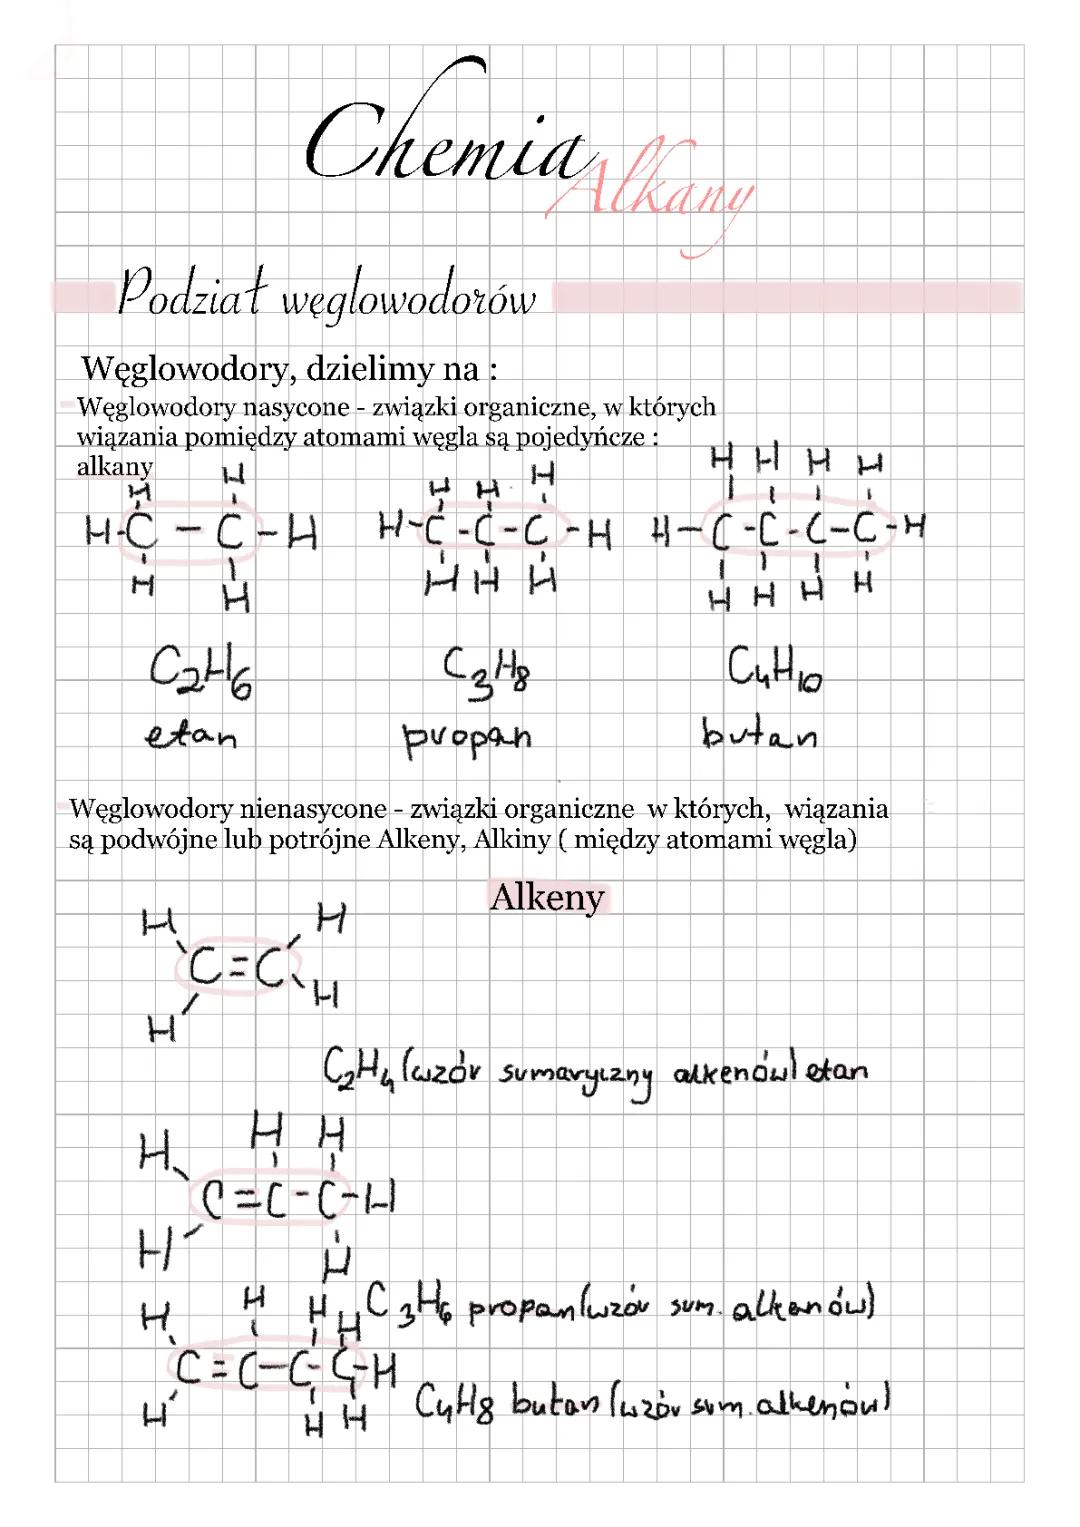 Chemia
Alkany
Podział węglowodorów
Węglowodory, dzielimy na :
Węglowodory nasycone - związki organiczne, w których
wiązania pomiędzy atomami węgla są pojedyńcze :
alkany
H H H H H H H H H
H-C - C-H H-C-C-C-H H-C-C-C-C-H
H H H H H H H H H
C₂H₆ C₃H₈ C₄H₁₀
etan propan butan
Węglowodory nienasycone - związki organiczne w których, wiązania
są podwójne lub potrójne Alkeny, Alkiny ( między atomami węgla)
Alkeny
H H
C=C
H H
C₂H₄ (wzór sumaryczny alkenów) etan
H H H
C=C-C-H
H H
C₃H₆ propan (wzór sum. alkenów)
H H H H
C=C-C-C-H
H H H
C₄H₈ butan (wzór sum. alkenów)